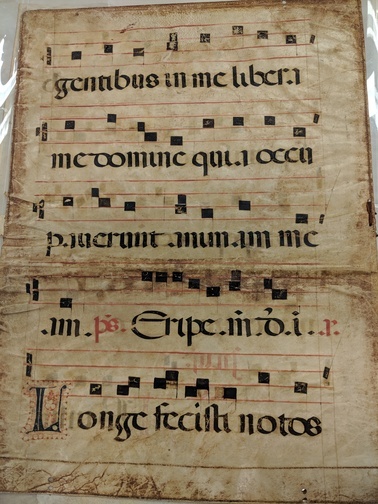 gentibus in me libera
me domine quia occu
paverunt animam me
am. ps. Eripe.m.d.i.r.
Longe fecisti notos